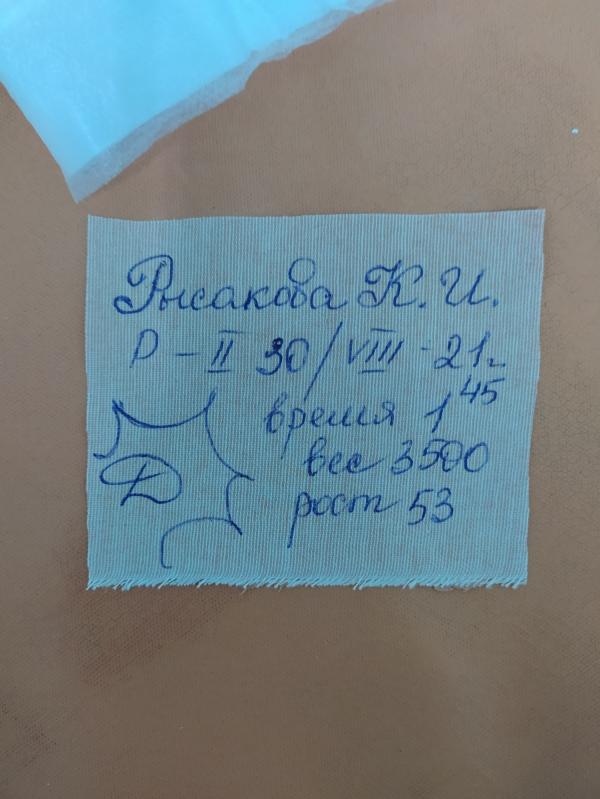 Рысакова К. И.
Р - II 30/VIII - 21г.
время 1 45
вес 3500
Д рост 53